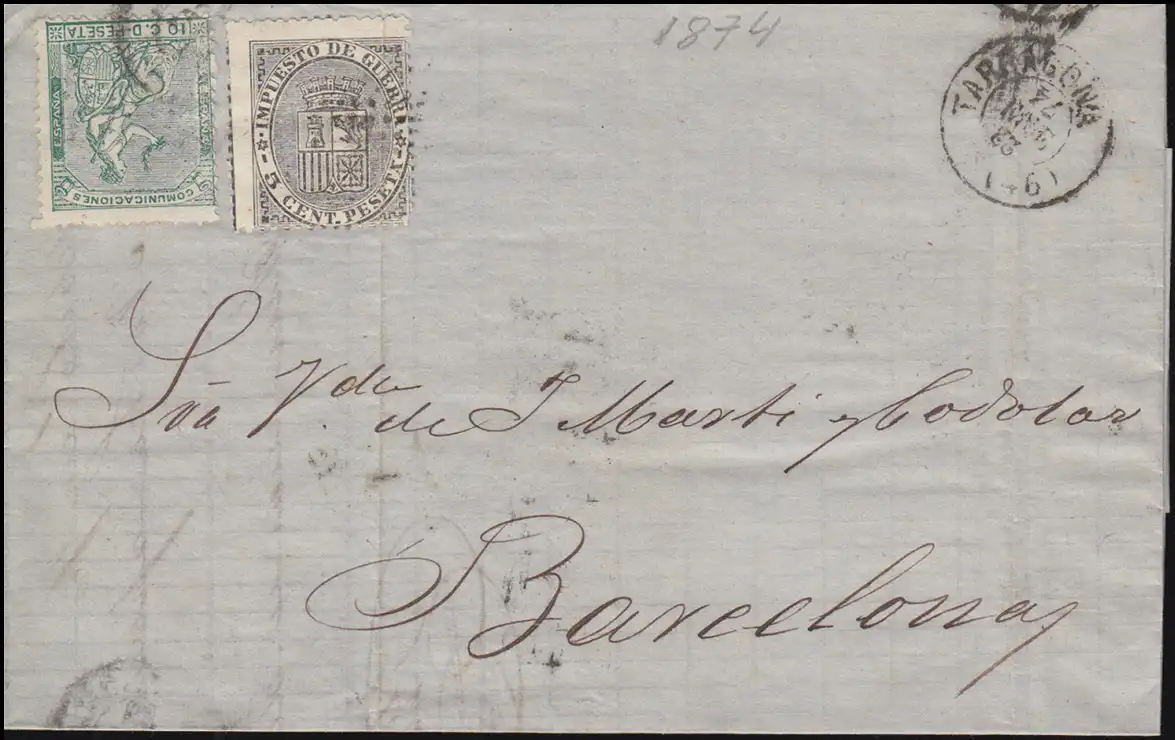 1874
10 C. D PESETA
ESPAÑA
ESPAÑA
COMUNICACIONES
IMPUESTO DE GUERRA
5 CENT. PESETA
TARRAGONA
74
23
(46)
Sra Vda de J Marti y Codolar
Barcelona